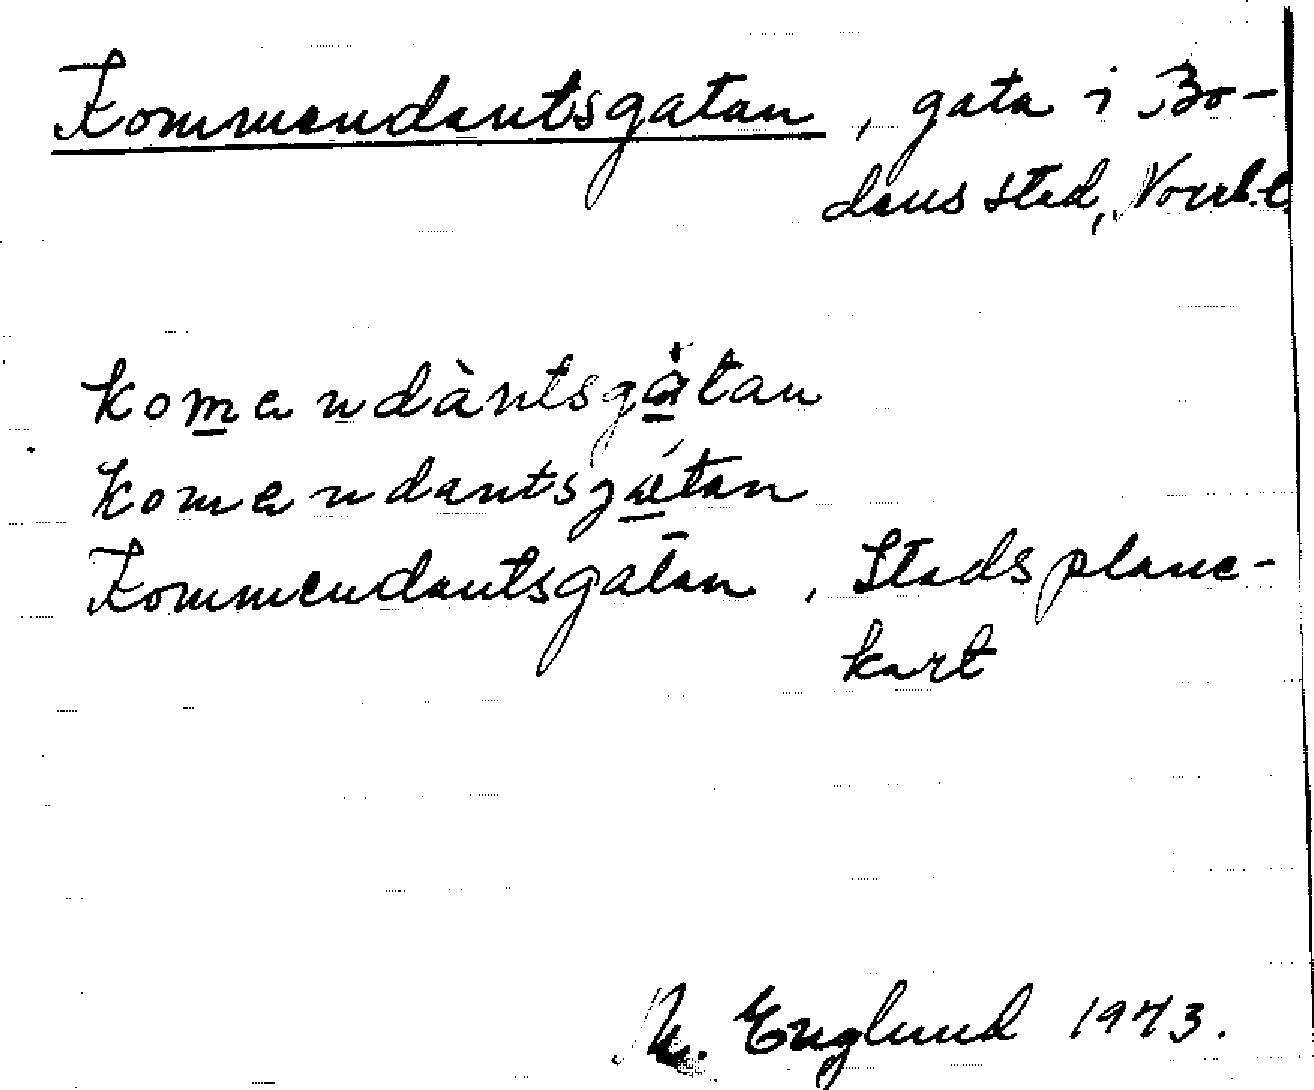 Kommendantsgatan, gata i Bo-
dens stad, Norrb.l.
komendàntsgàtan
komendantsgátan
Kommendantsgatan, Stadsplane-
kart
Englund 1943.